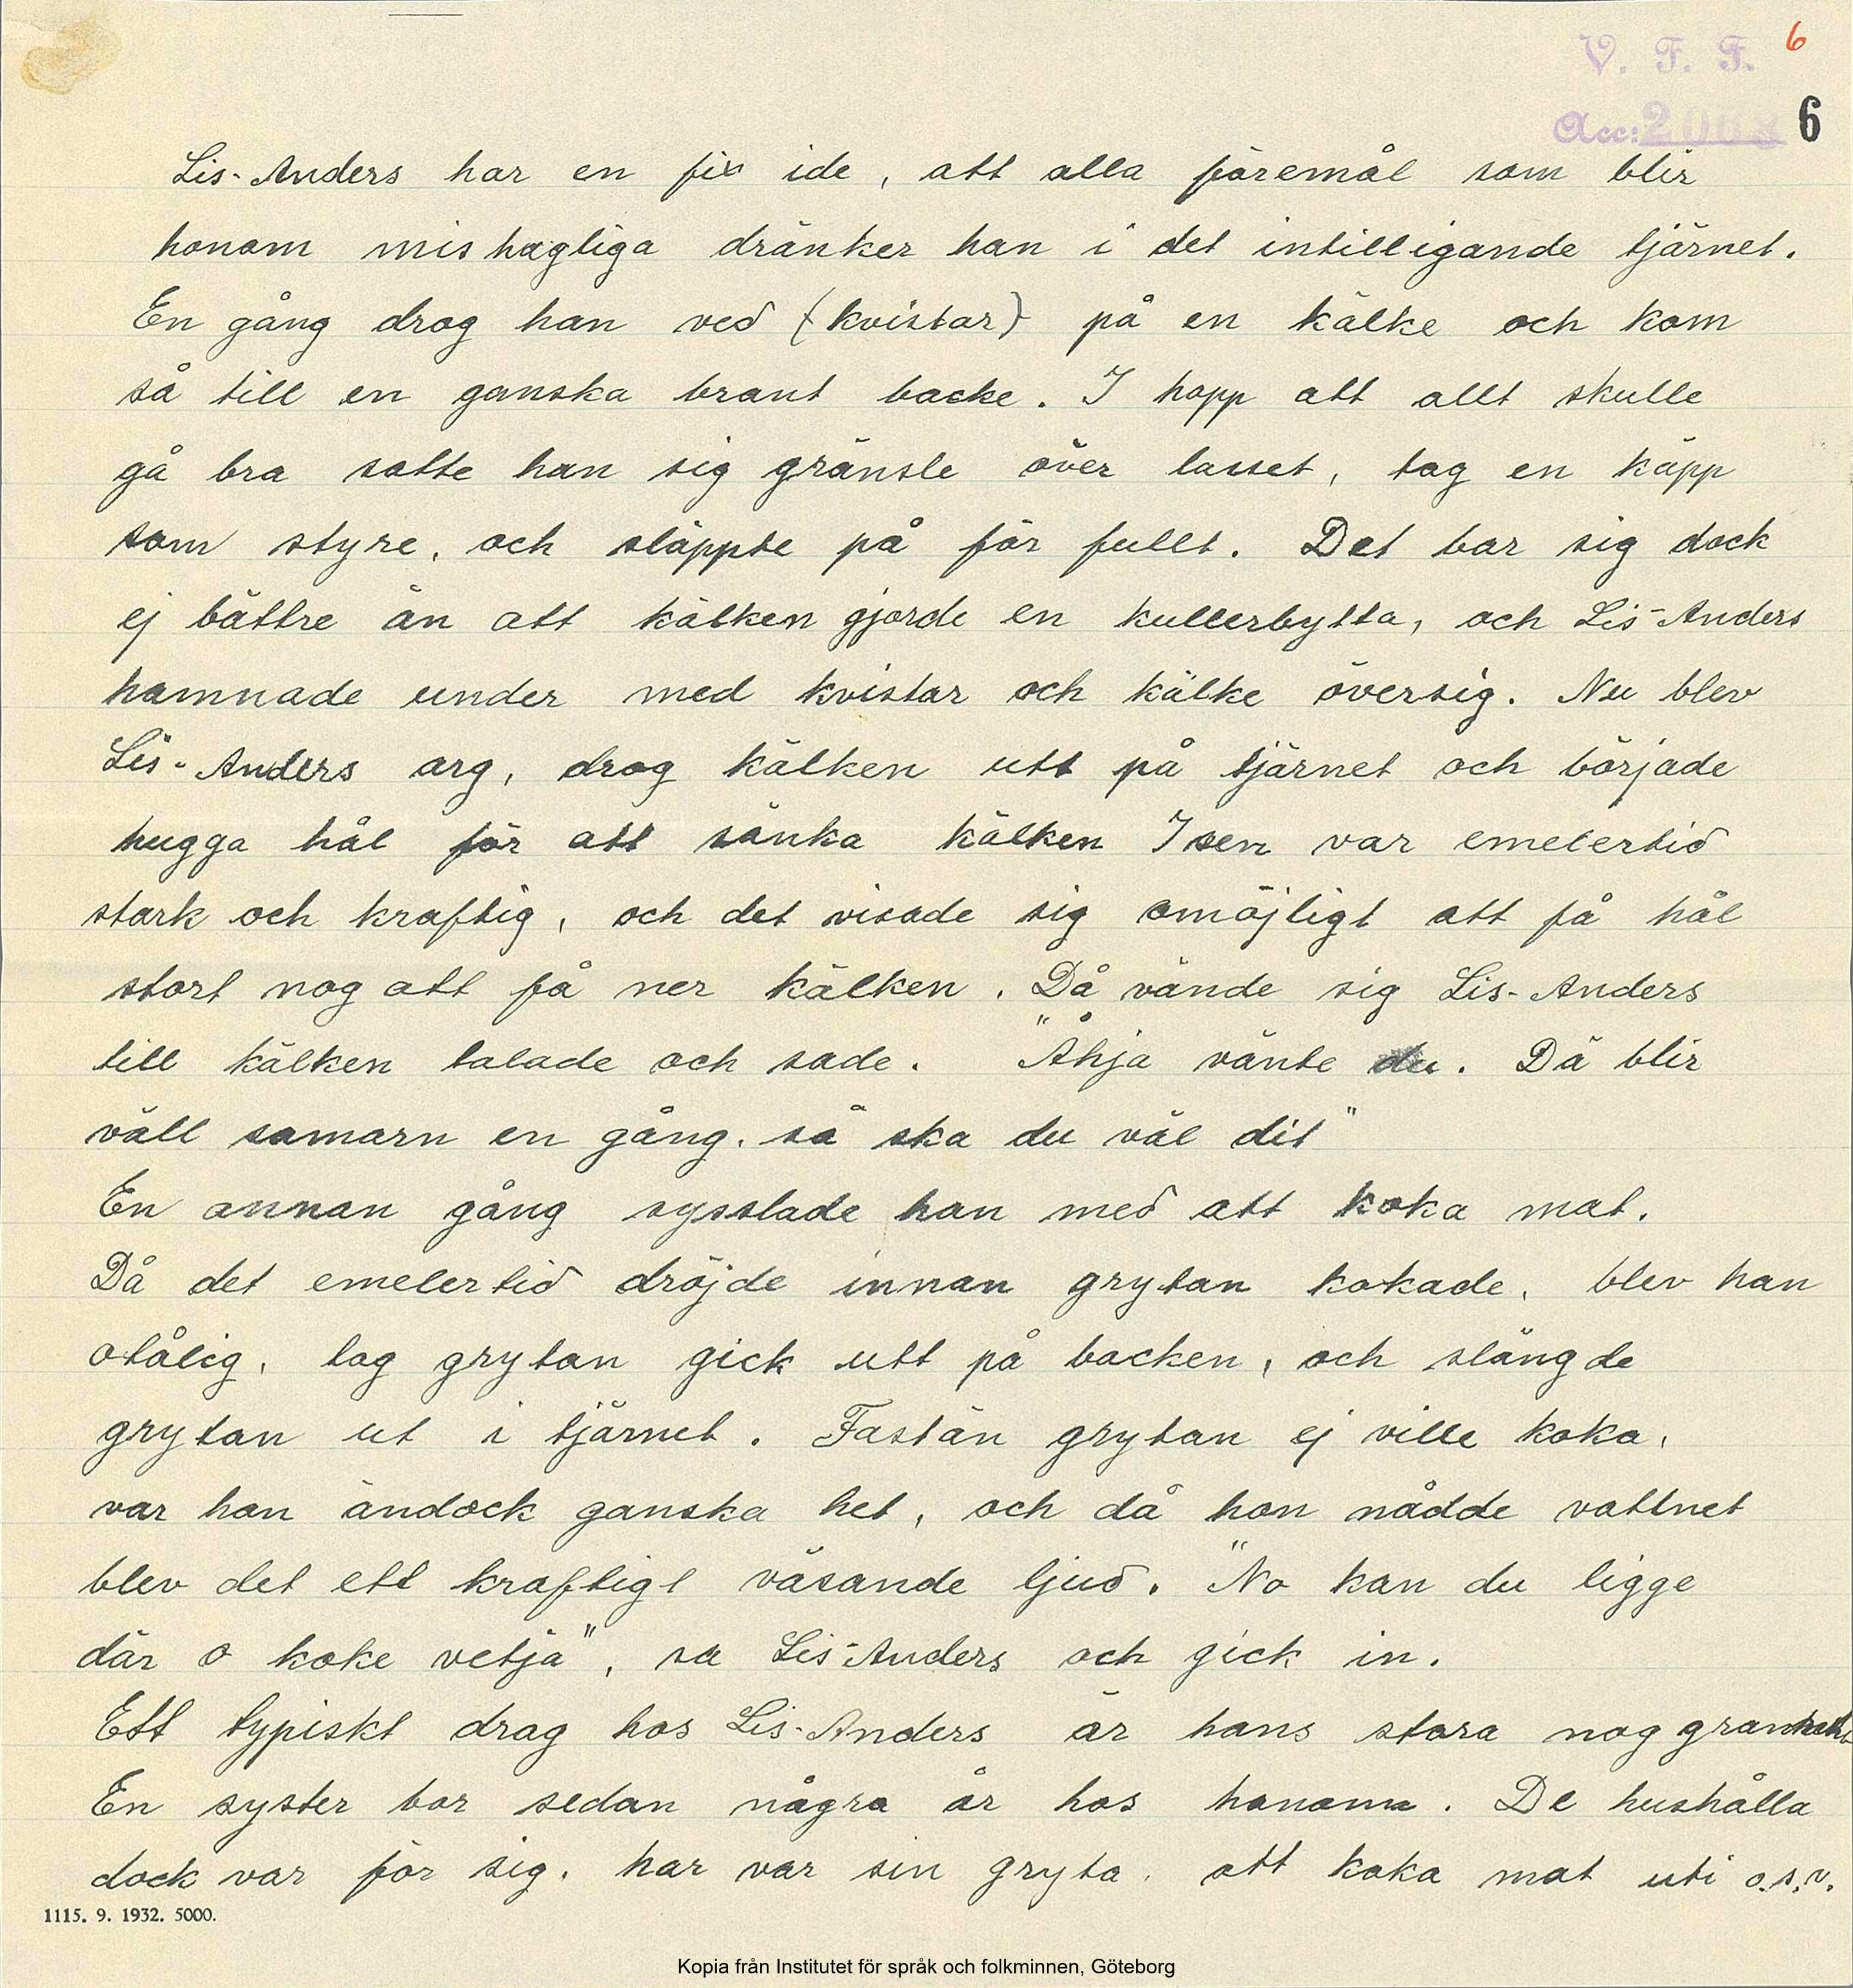 6
V. F. F.
Acc: 2068 6
Lis-Anders har en fix ide, att alla föremål som blir
honom mishagliga dränker han i det intilligande tjärnet.
En gång drog han ved (kvistar) på en kälke och kom
så till en ganska brant backe. I hopp att allt skulle
gå bra satte han sig gränsle över lasset, tog en käpp
som styre, och släppte på för fullt. Det bar sig dock
ej bättre än att kälken gjorde en kullerbytta, och Lis-Anders
hamnade under med kvistar och kälke översig. Nu blev
Lis-Anders arg, drog kälken utt på tjärnet och började
hugga hål för att sänka kälken Isen var emelertid
stark och kraftig, och det visade sig omöjligt att få hål
stort nog att få ner kälken. Då vände sig Lis-Anders
till kälken talade och sade. "Åhja vänte du. Dä blir
väll samarn en gång, så ska du väl dit"
En annan gång sysslade han med att koka mat.
Då det emelertid dröjde innan grytan kokade, blev han
otålig, tog grytan gick utt på backen, och slängde
grytan ut i tjärnet. Fastän grytan ej ville koka,
var han ändock ganska het, och då hon nådde vattnet
blev det ett kraftigt väsande ljud. "No kan du ligge
där o koke vetja", sa Lis-Anders och gick in.
Ett typiskt drag hos Lis-Anders är hans stora nog
En syster bor sedan några år hos honom. De hushålla
dock var för sig, har var sin gryta, att koka mat uti o.s.v.
1115. 9. 1932. 5000.
Kopia från Institutet för språk och folkminnen, Göteborg